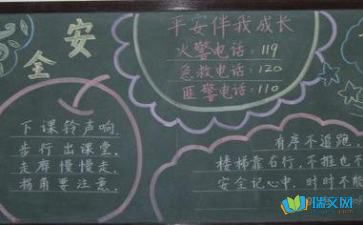 安全
平安伴我成长
火警电话：119
急救电话：120
匪警电话：110
下课铃声响，
步行出课堂，
走廊慢慢走，
拐角要注意。
有序不追跑，
楼梯靠右行，不推也不
安全记心中，时时不能
瑞文网